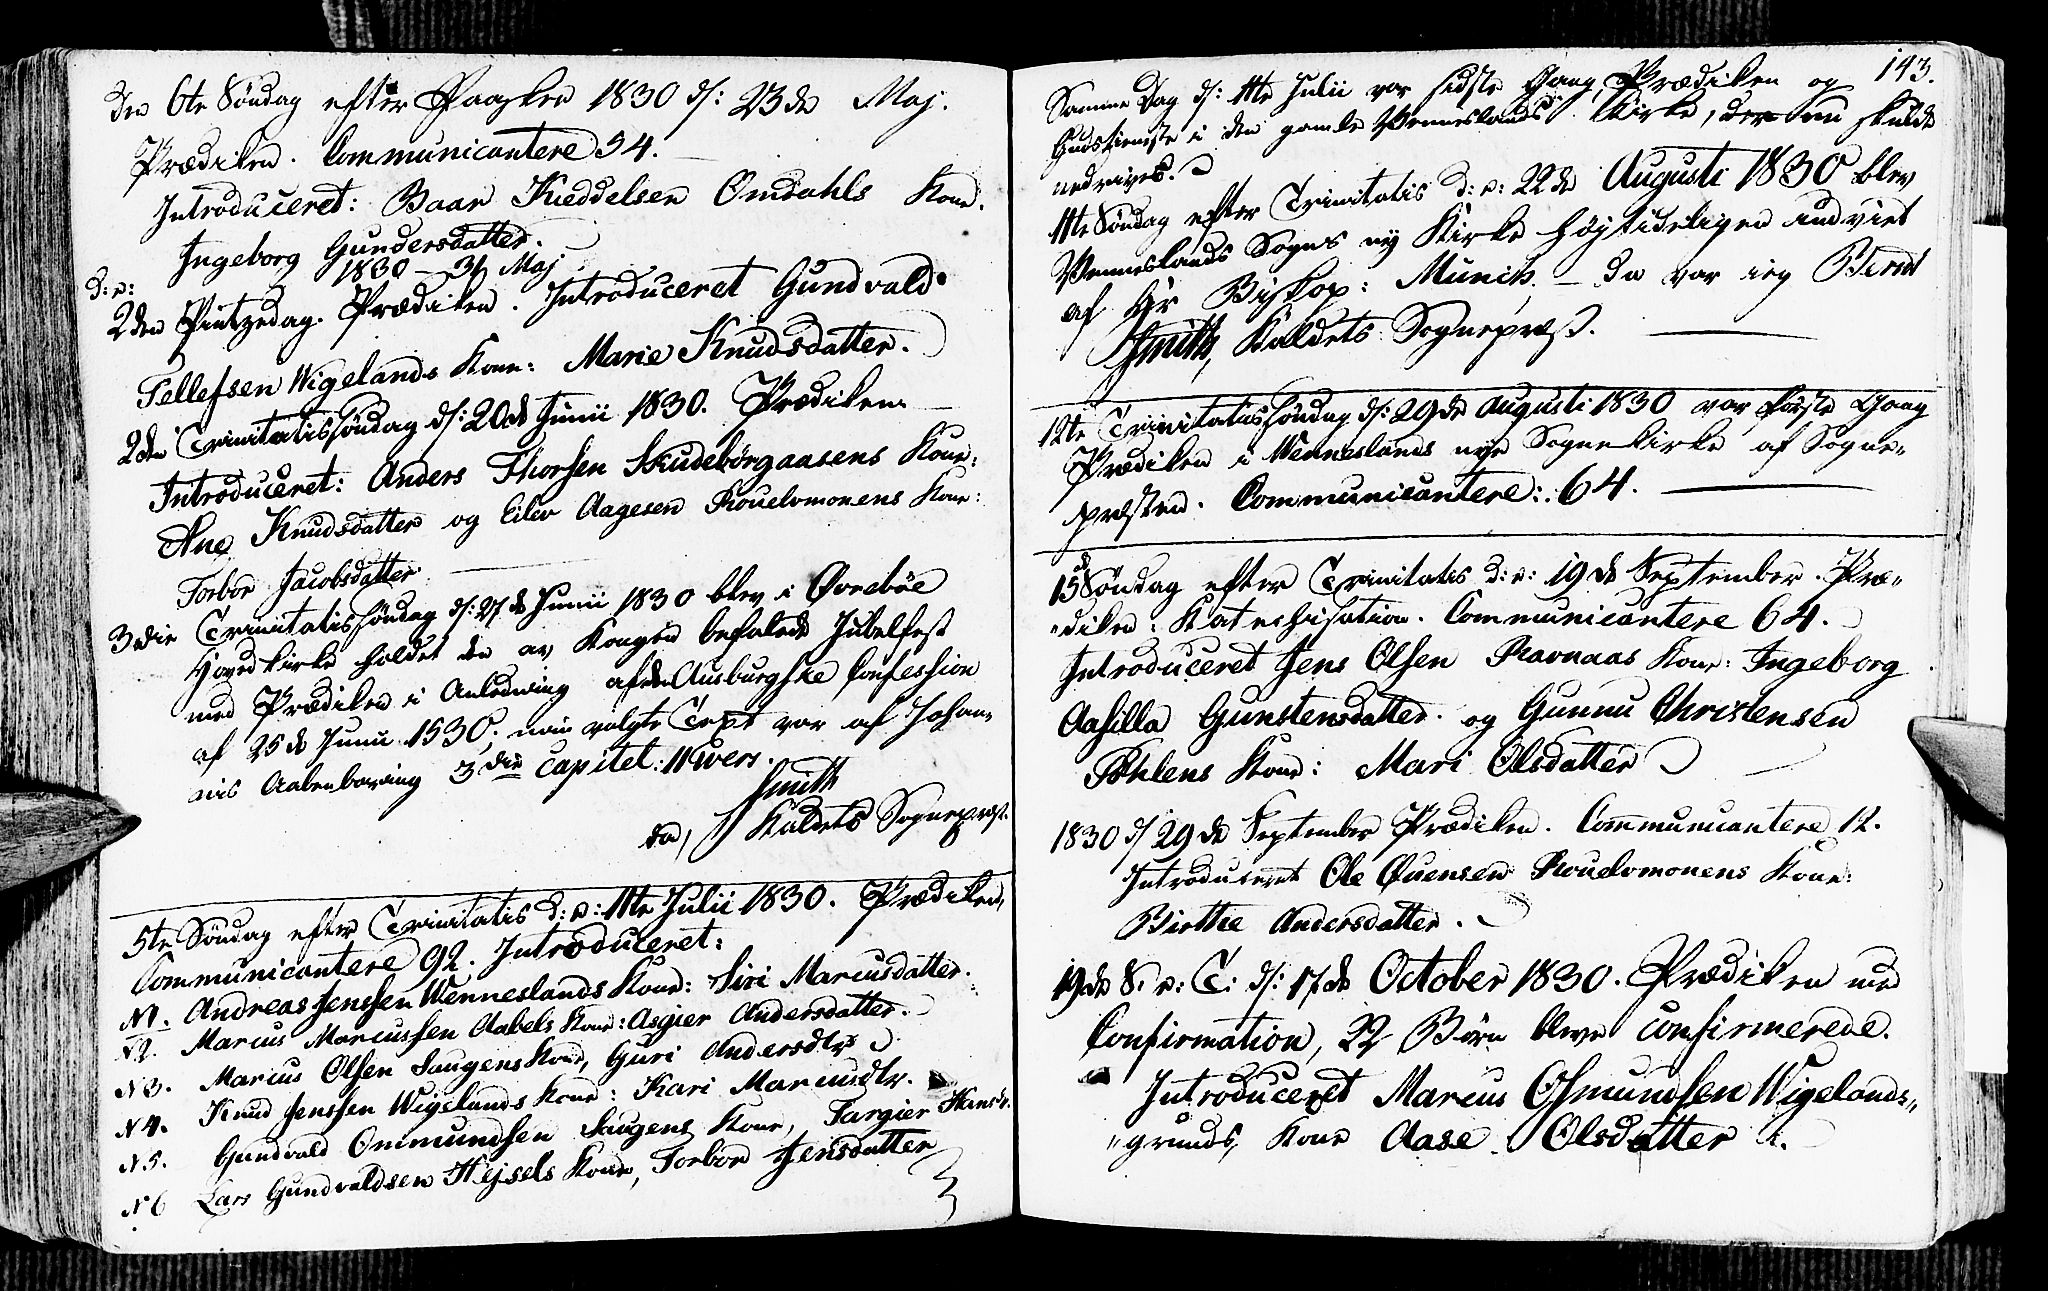 Den 6te Söndag efter Paasken 1830 d/: 23de Maj.
Prædiken. Communicantere 54.
Introduceret: Baar Kieddelsen Omdahls Kone.
Ingeborg Gundersdatter.
1830 – 31 Maj
d: e:
2den Pintzedag. Prædiken. Introduceret Gundvald
Tellefsen Wigelands Kone: Marie Knudsdatter.
2den Trinitatissöndag d/: 20de Junii 1830. Prædiken
Introduceret: Anders Thorsen Skudebörgaasens Kone:
Ane Knudsdatter og Eilev Aagesen Kone:
Torbor Jacobsdatter.
3die Trinitatissöndag d/: 27de Junii 1830 blev i Øvreböe
Hovedkirke holdet den av Kongen befalede Jubelfest
med Prædiken i Anledning af den Ausburgske Confession
af 25de Junii 1530; min valgte Text var af Johan-
nis Aabenbaring 3die Capitel: 11 Vers.
Smith
Kaldets Sognepræst.
5te Söndag efter Trinitatis d: e: 11te Julii 1830. Prædiken,
Communicantere 92. Introduceret:
N1. Andreas Jenssen Wenneslands Kone: Siri Marcusdatter.
N2. Marcus Marcussen Aabels Kone: Asgier Andersdatter.
N3. Marcus Olsen Saugens Kone, Guri Andersdtr
N4. Knud Jenssen Wigelands Kone: Kari Marcusdtr.
N5. Gundvald Ommundsen Saugens Kone, Targier Hansdr.
N6 Lars Gundvaldsen Hejsels Kone, Torbor Jensdatter
143.
Samme Dag d/: 11te Julii var sidste Gang Prædiken og
Gudstieneste i den gamle Wenneslands Kirke, der nu skulde
nedrives.
11te Söndag efter Trinitatis d: e: 22de Augusti 1830 blev
Wenneslands Sogns ny Kirke höjtideligen indviet
af Hr Biskop: Munch. – Da var jeg Bernt
Smith, Kaldets Sognepræst.
12te Trinitatissöndag d/: 29de Augusti 1830 var förste Gang
Prædiken i Wenneslands nye Sognekirke af Sogne-
præsten. Communicantere: 64.
15de Söndag efter Trinitatis d: e: 19de September. Præ-
diken: Katechisation. Communicantere 64.
Introduceret Jens Olsen Ravnaas Kone: Ingeborg
Aasilla Gunstensdatter. og Gunnu Christensen
Kone: Mari Olsdatter
1830 d/ 29de September Prædiken. Communicantere 12.
Introduceret Ole Kone:
Birthe Andersdatter.
19de S. e: T: d/: 17de October 1830. Prædiken med
Confirmation, 22 Börn bleve confirmerede.
Introduceret Marcus Osmundsen Wigelands-
grunds, Kone Aase Olsdatter